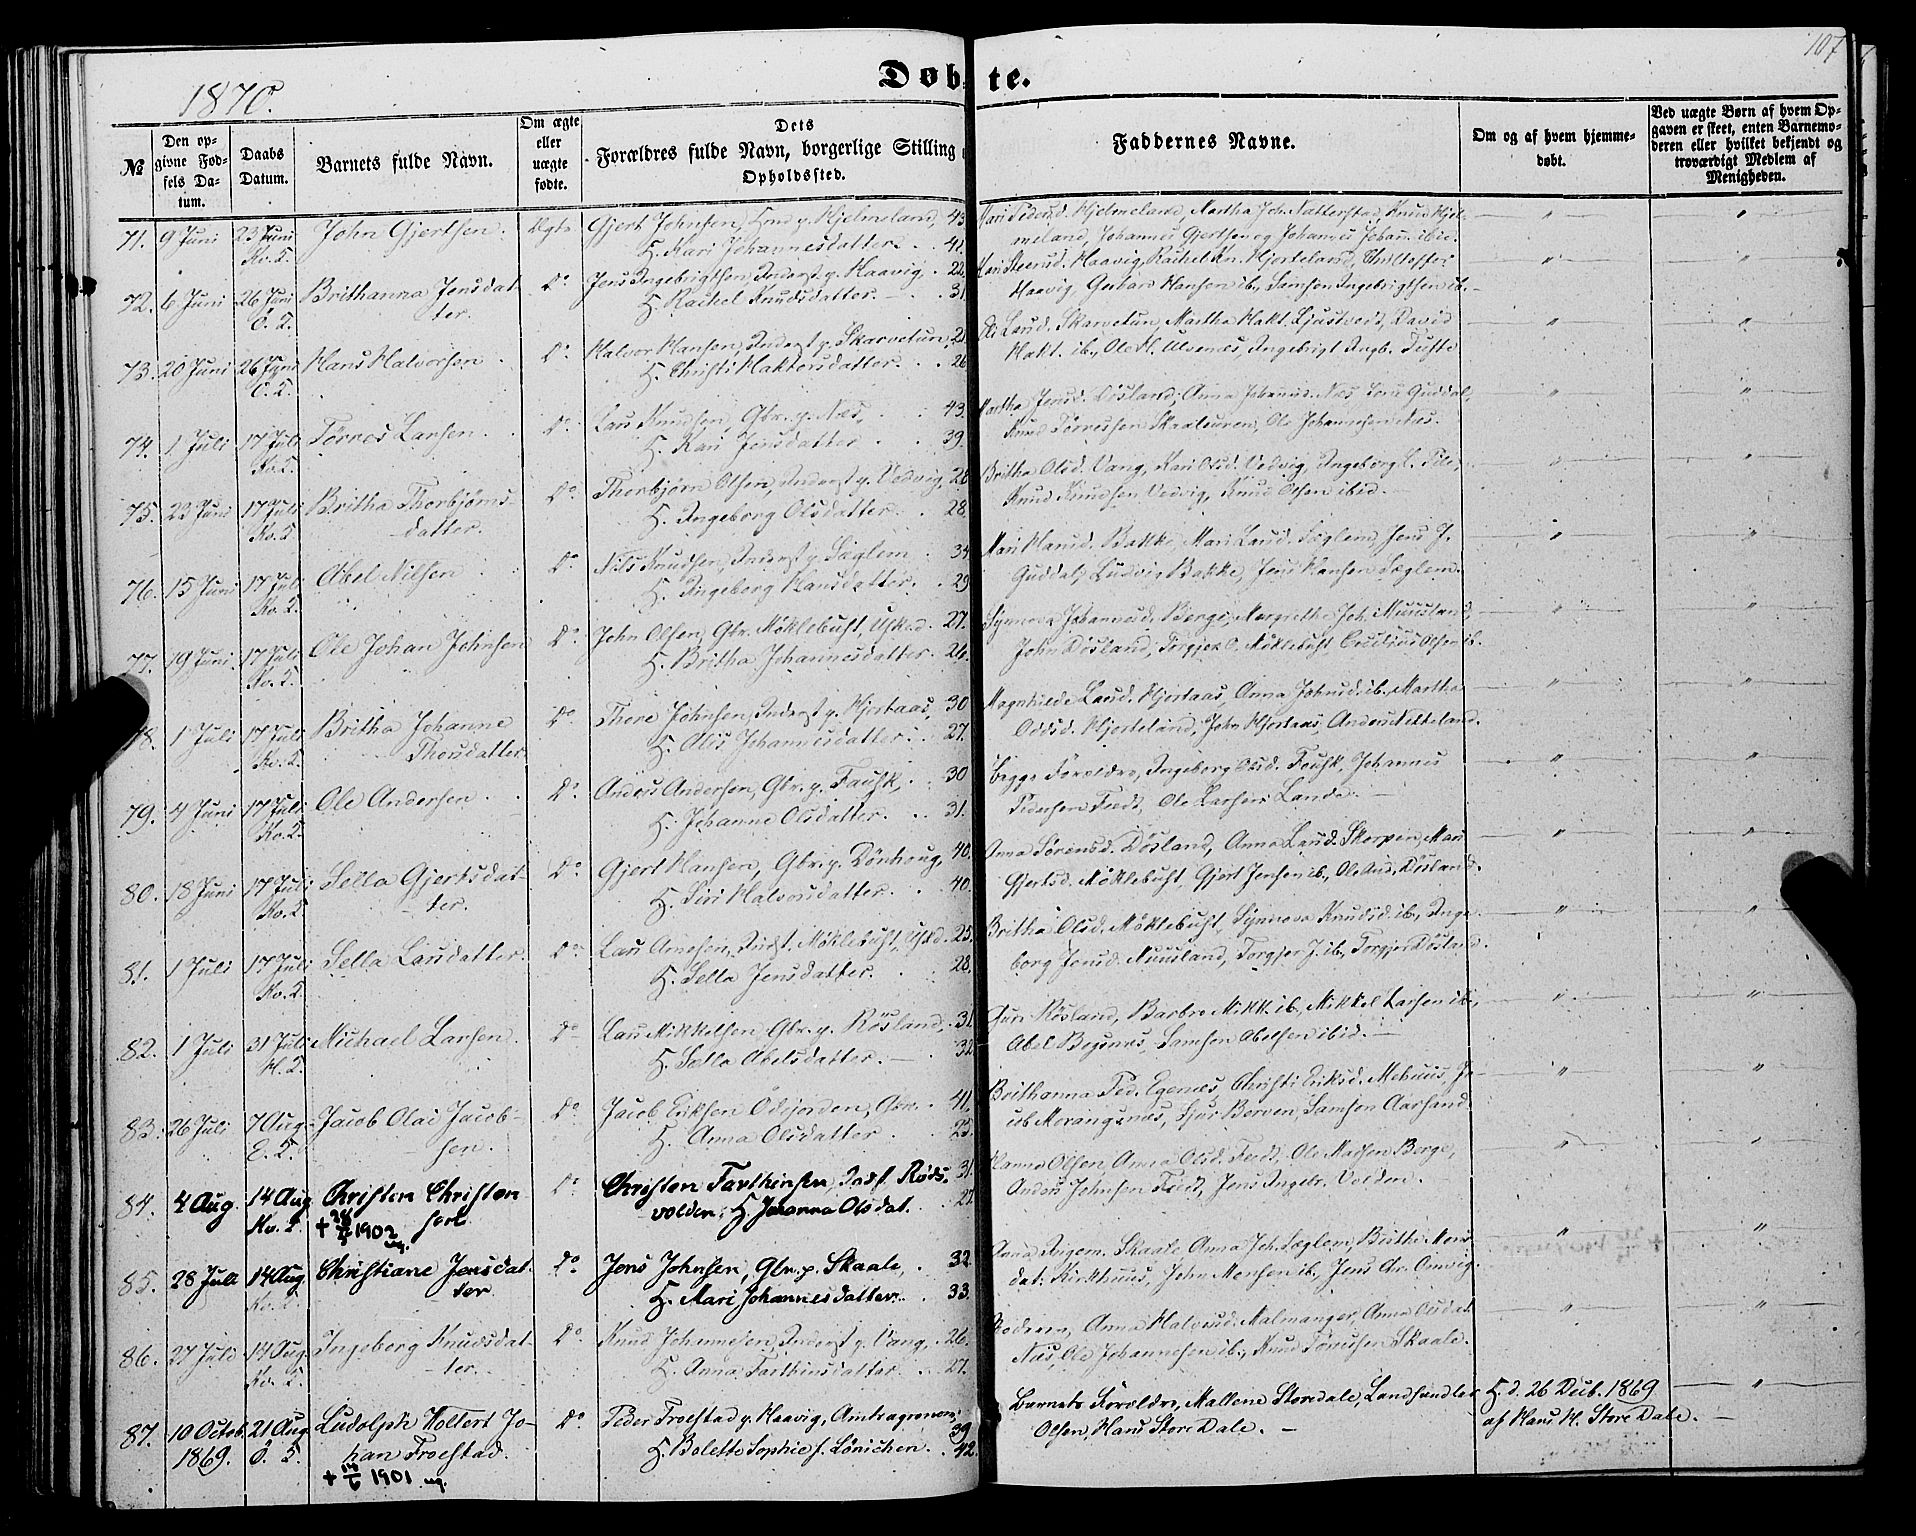 107
1870.
Døbte.
№
Den opgivne Fødsels Datum.
Daabs Datum.
Barnets fulde Navn.
Om ægte eller uægte fødte.
Dets Forældres fulde Navn, borgerlige Stilling
Opholdssted.
Faddernes Navne.
Om og af hvem hjemmedøbt.
Ved uægte Børn af hvem Opgaven er skeet, enten Barnemoderen eller hvilket bekjendt og troværdigt Medlem af Menigheden.
71. 9 Juni 23 Juni John Gjertsen. Ægte Gjert Johnsen, Hmd p. Hjelmeland, 43
Kv. S. H. Kari Johannesdatter. 41.
Mari Pedersd. Hjelmeland, Martha Joh. Natterstad, Knud Hjelmeland, Johannes Gjertsen og Johannes Johan. ibid.
72. 6 Juni 26 Juni Brithanna Jensdatter. Do Jens Ingebrigtsen, Inderst p. Haavig, 22.
Ö. S. H. Rachel Knudsdatter. 31
Haavig, Rachel Kn. Hjorteland,
Haavig, Gerhard Hansen ib., Samson Ingebrigtsen ib.
73. 20 Juni 26 Juni Hans Halvorsen Do Halvor Hansen, Inderst p. Skarvetun,
Ö. S. H. Christi Haktorsdatter. 26
Larsd. Skarvetun, Martha Hakt. Ljustvedt, David
Hakt. ib., Ole H. Ulvenes, Ingebrigt Ingb. Tufte
74. 1 Juli 17 Juli Tørres Larsen. Do Lars Knudsen, Gbr. p. Næs, 43.
Kv. S. H. Kari Jensdatter 39.
Martha Jensd. Døsland, Anna Johannsd. Næs, Guddal,
Knud Tørressen Skaaleuren, Ole Johannesen Næs.
75. 22 Juni 17 Juli Britha Thorbjørnsdatter. Do Thorbjørn Olsen, Inderst p. Vedvig, 28
Kv. S. H. Ingeborg Olsdatter. 28.
Britha Olsd. Vang, Kari Olsd. Vedvig, Ingeborg
Knud Knudsen Vedvig, Knud Olsen ibid.
76. 15 Juni 17 Juli Abel Nilsen Do Nils Knudsen, Inderst p. Sæglem 34
Kv. S. H. Ingeborg Hansdatter. 29
Mari Hansd. Bakke, Mari Larsd. Sæglem, Jens J.
Guddal, Ludvig Bakke, Jens Hansen Sæglem.
77. 19 Juni 17 Juli Ole Johan Johnsen Do John Olsen, Gbr. Møklebust, Uskd. 27.
Kv. S. H. Britha Johannesdatter. 26.
Synnova Johannesd. Berge, Margretha Joh. Muusland,
John Døsland, Torgjer O. Møklebust, Olsen ib.
78. 1 Juli 17 Juli Britha Johanne Thoresdatter Do Thore Johnsen, Inderst p. Hjortaas, 30
Kv. S. H. Johannesdatter. 27.
Magnhilde Larsd. Hjortaas, Anna Johnsd. ib., Martha
Oddsd. Hjorteland, John Hjortaas, Anders Netteland.
79. 4 Juni 17 Juli Ole Andersen Do Anders Andersen, Gbr. p. Fausk, 30
Kv. S. H. Johanne Olsdatter. 31.
Begge Forældre, Ingeborg Olsd. Fausk, Johannes
Pedersen Tvedt, Ole Larsen Lande.
80. 18 Juni 17 Juli Sella Gjertsdatter. Do Gjert Hansen, Gbr. p. Dönhoug, 40.
Kv. S. H. Siri Halvorsdatter. 40.
Anna Sørensd. Døsland, Anna Larsd. Skorpen, Mari
Gjertsd. Møklebust, Gjert Jensen ib., Ole And. Døsland.
81. 1 Juli 17 Juli Sella Larsdatter. Do Lars Arnesen, Indst. Møklebust, Uskd. 25.
Kv. S. H. Sella Jensdatter. 28.
Britha Olsd. Møklebust, Synnova Knudsd. ib., Ingeborg Jensd. Muusland, Torgjer J. ib., Torgjer Døsland.
82. 1 Juli 31 Juli Michael Larsen. Do Lars Mikkelsen Gbr. p. Røsland, 31.
H. S. H. Sella Abelsdatter. 32
Guri Røsland, Barbro Mikk. ib., Mikkel Larsen ib.,
Abel Begsnæs, Samson Abelsen ibid.
83. 26 Juli 7 Aug. Jacob Olai Jacobsen. Do Jacob Eriksen Ödejorden, Gbr. 41.
E. S. H. Anna Olsdatter 25.
Brithanna Ped. Egenæs, Christi Eriksd. Mehuus, Jacob Morangsnæs, Sjur Berven, Samson Aarsand.
84. 4 Aug. 14 Aug Christen Christensen Do Christen Farthinsen, Indst. Rødsvolden, 31.
Kv. S. † 1902 H. Johanna Olsdat. 27.
Hanna Olsen, Anna Olsd. Tvedt, Ole Matsen Berge,
Anders Johnsen Tvedt, Jens Ingebr. Volden.
85. 28 Juli 14 Aug. Christiane Jensdatter Do Jens Johnsen, Gbr. p. Skaale, 32
Kv. S. H. Mari Johannesdatter. 33.
Anna Ingem. Skaale, Anna Joh. Sæglem, Brithe Monsdat. Kirkhuus, John Monsen ib., Jens Chr. Omvig.
86. 27 Juli 14 Aug. Ingeborg Knudsdatter. Do Knud Johannesen, Inderst p. Vang, 26.
Kv. S. H. Anna Farthinsdatter. 27.
Anna Halvorsd. Malmanger, Anna Olsdat.
Næs, Ole Johannesen ib., Knud Tørressen Skaale.
87. 10 Octob. 1869. 21 Aug. Ludolph Woltert Johan Troestad. Do Peder Troestad p. Haavig, Amtsagronom, 39
Ö. S. † 1901 H. Bolette Sophie f. Lönichen. 42.
Barnets Forældre, Mallene Storedale, Landhandler
Olsen, Hans Store Dale.
H. d. 26 Dcb. 1869
af Hans H. Store Dale.